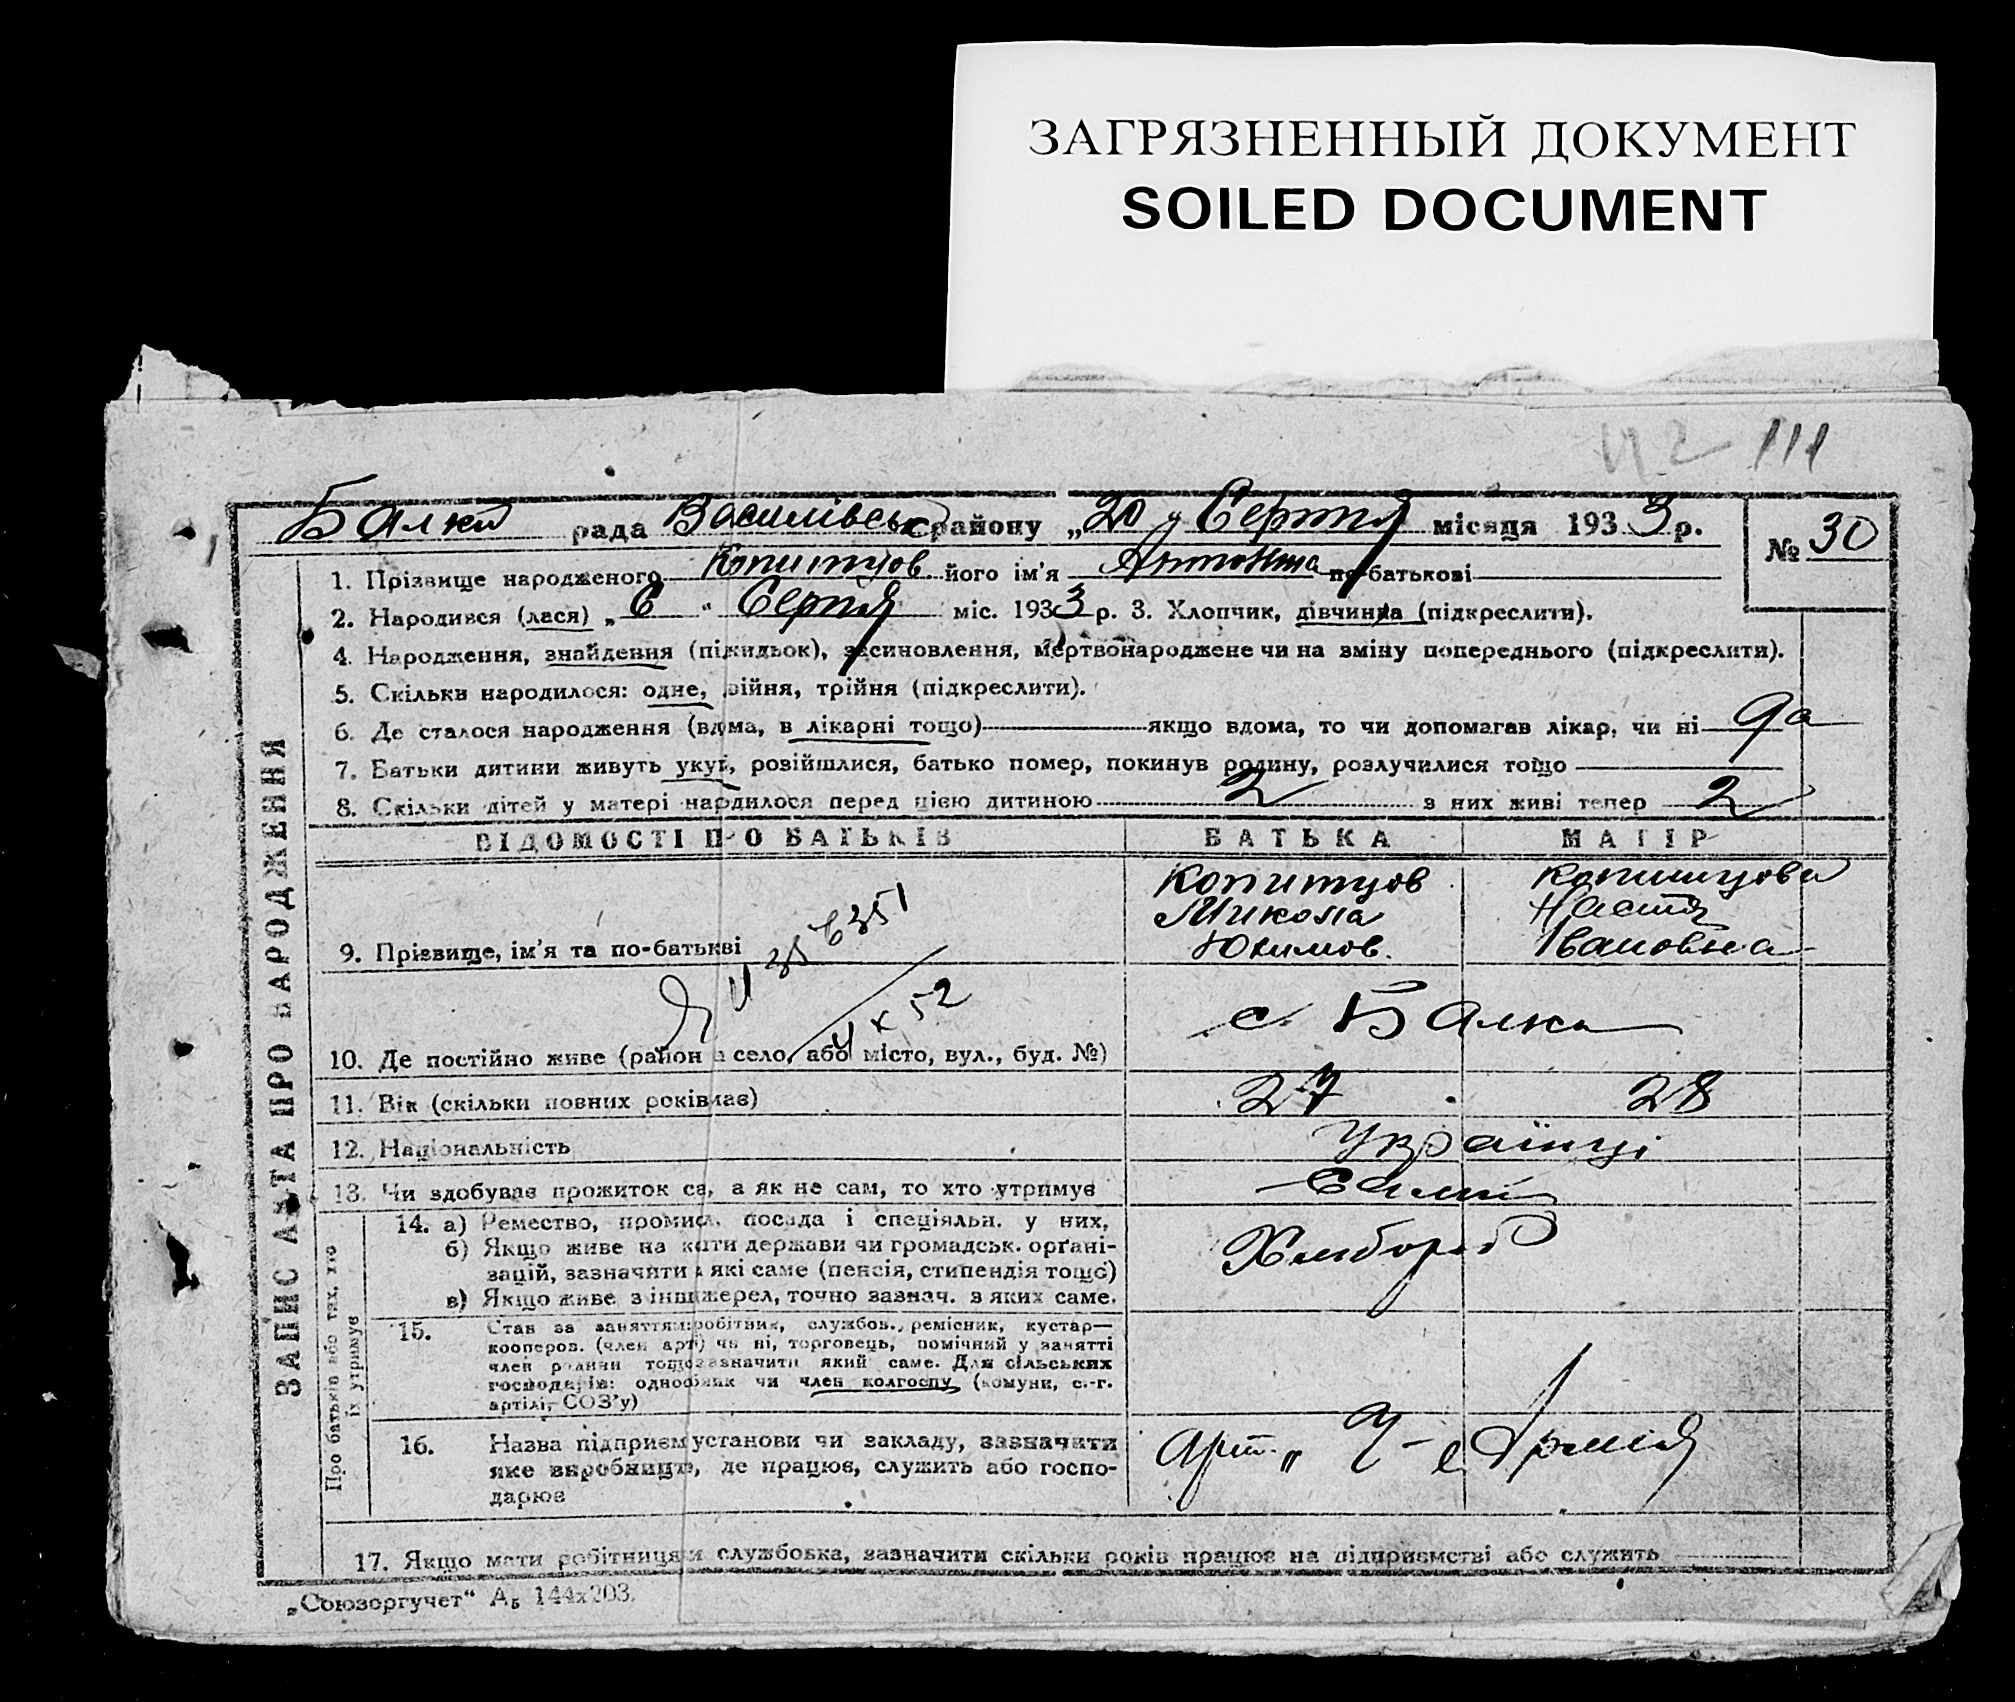 ЗАГРЯЗНЕННЫЙ ДОКУМЕНТ
SOILED DOCUMENT
112 111
Балки рада Василівськ району „20„ Серпня місяця 1933 р.
№ 30
ЗАПИС АКТА ПРО НАРОДЖЕННЯ
1. Прізвище народженого Копитцов його ім'я Антоніна по-батькові
2. Народився (лася) „6" Серпня міс. 1933 р. 3. Хлопчик, дівчинка (підкреслити).
4. Народження, знайдення (підкидьок), засиновлення, мертвонароджене чи на зміну попереднього (підкреслити).
5. Скільки народилося: одне, двійня, трійня (підкреслити).
6. Де сталося народження (вдома, в лікарні тощо) якщо вдома, то чи допомагав лікар, чи ні да
7. Батьки дитини живуть укупі, розійшлися, батько помер, покинув родину, розлучилися тощо
8. Скільки дітей у матері народилося перед цією дитиною 2 з них живі тепер 2
ВІДОМОСТІ ПРО БАТЬКІВ БАТЬКА МАТІР
9. Прізвище, ім'я та по-батькві
Копитцов
Микола
Юхимов.
Копитцова
Настя
Івановна
10. Де постійно живе (район село, або місто, вул., буд. №) с. Балки
11. Вік (скільки повних років має) 27 28
12. Національність Українці
13. Чи здобуває прожиток сам, а як не сам, то хто утримує Самі
Про батьків або тих, хто
їх утримує
14. а) Ремество, промисл, посада і спеціяльн. у них,
б) Якщо живе на кошти держави чи громадськ. орґані-
зацій, зазначити які саме (пенсія, стипендія тощо)
в) Якщо живе з інш. джерел, точно зазнач. з яких саме.
Хлибороб
15. Стан за заняттям: робітник, службов., ремісник, кустар—
кооперов. (член арт.) чи ні, торговець, помічний у занятті
член родини тощо зазначити який саме. Для сільських
господарів: одноосібник чи член колгоспу (комуни, с.-г.
артілі, СОЗ'у)
16. Назва підприєм. установи чи закладу, зазначити
яке виробництв, де працює, служить або госпо-
дарює
Арт. „ Ч-е Армія
17. Якщо мати робітниця чи службовка, зазначити скільки років працює на підприємстві або служить
„Союзоргучет" Аб 144х203.